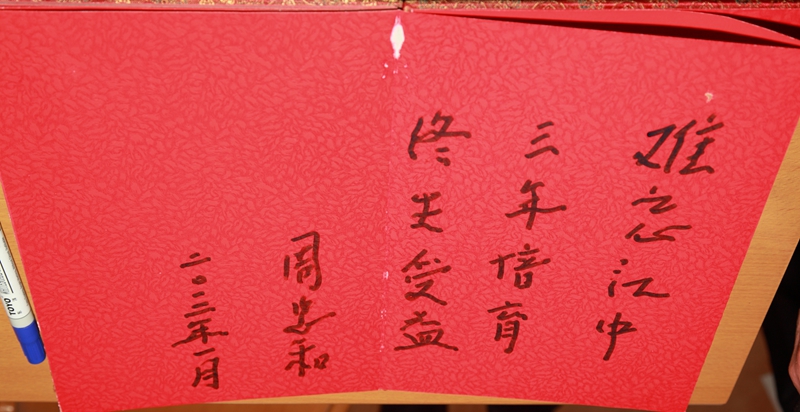 难忘江中
三年培育
终生受益
周忠和
二〇二三年一月
TOYO